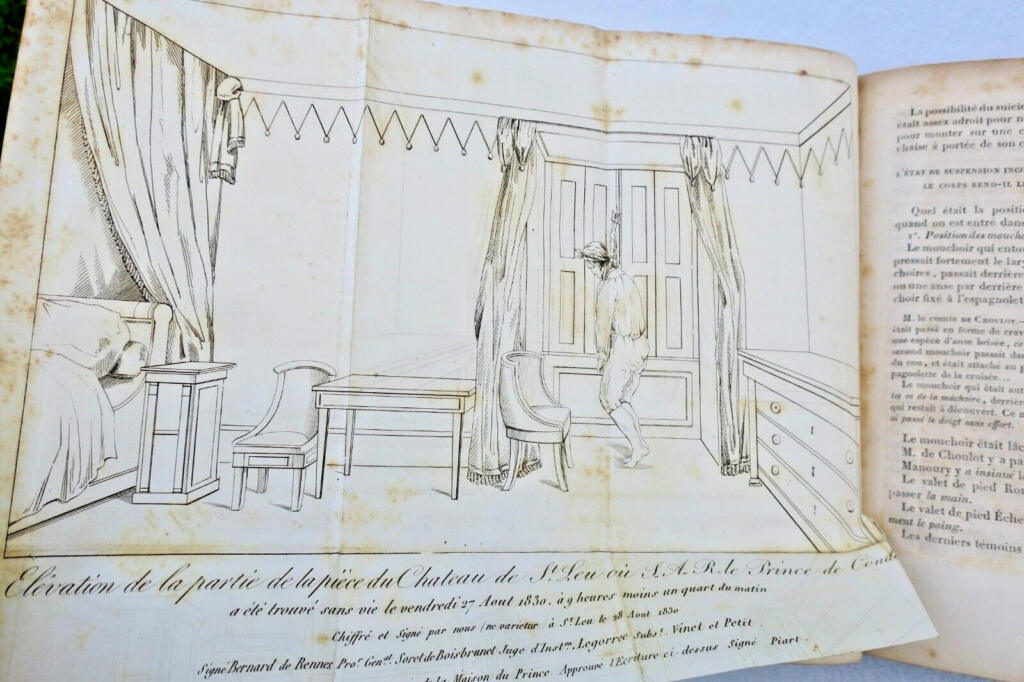 Elévation de la partie de la pièce du Chateau de St. Leu où S.A.R. le Prince de Condé
a été trouvé sans vie le vendredi 27 Aout 1830, à 9 heures moins un quart du matin
Chiffré et Signé par nous (ne varietur) à St. Leu le 28 Aout 1830
Signé Bernard de Rennes Pror. Genal. Soret de Boisbrunet Juge d'Inston. Legorrec Subst. Vinet et Petit.
de la Maison du Prince Approuvé l'Ecriture ci-dessus Signé Piart.
La possibilité du suici
était assez adroit pour
pour monter sur une
chaise à portée de son
L'ÉTAT DE SUSPENSION
LE CORPS REND-IL
Quel était la positi
quand on est entré dans
1°. Position des moucho
Le mouchoir qui ento
pressait fortement le lary
choires, passait derrière
ou une anse par derrière
choir fixé à l'espagnolet
M. le comte DE CHOULOT.
était passé en forme de crav
une espèce d'anse brisée, ce
second mouchoir passait dan
du cou, et était attaché au
pagnolette de la croisée...
Le mouchoir qui était aut
les os de la mâchoire, derrièr
qui restait à découvert. Ce
ai passé le doigt sans effort.
Le mouchoir était lâc
M. de Choulot y a pa
Manoury y a insinué la
Le valet de pied Ro
passer la main.
Le valet de pied Éche
ment le poing.
Les derniers témoins